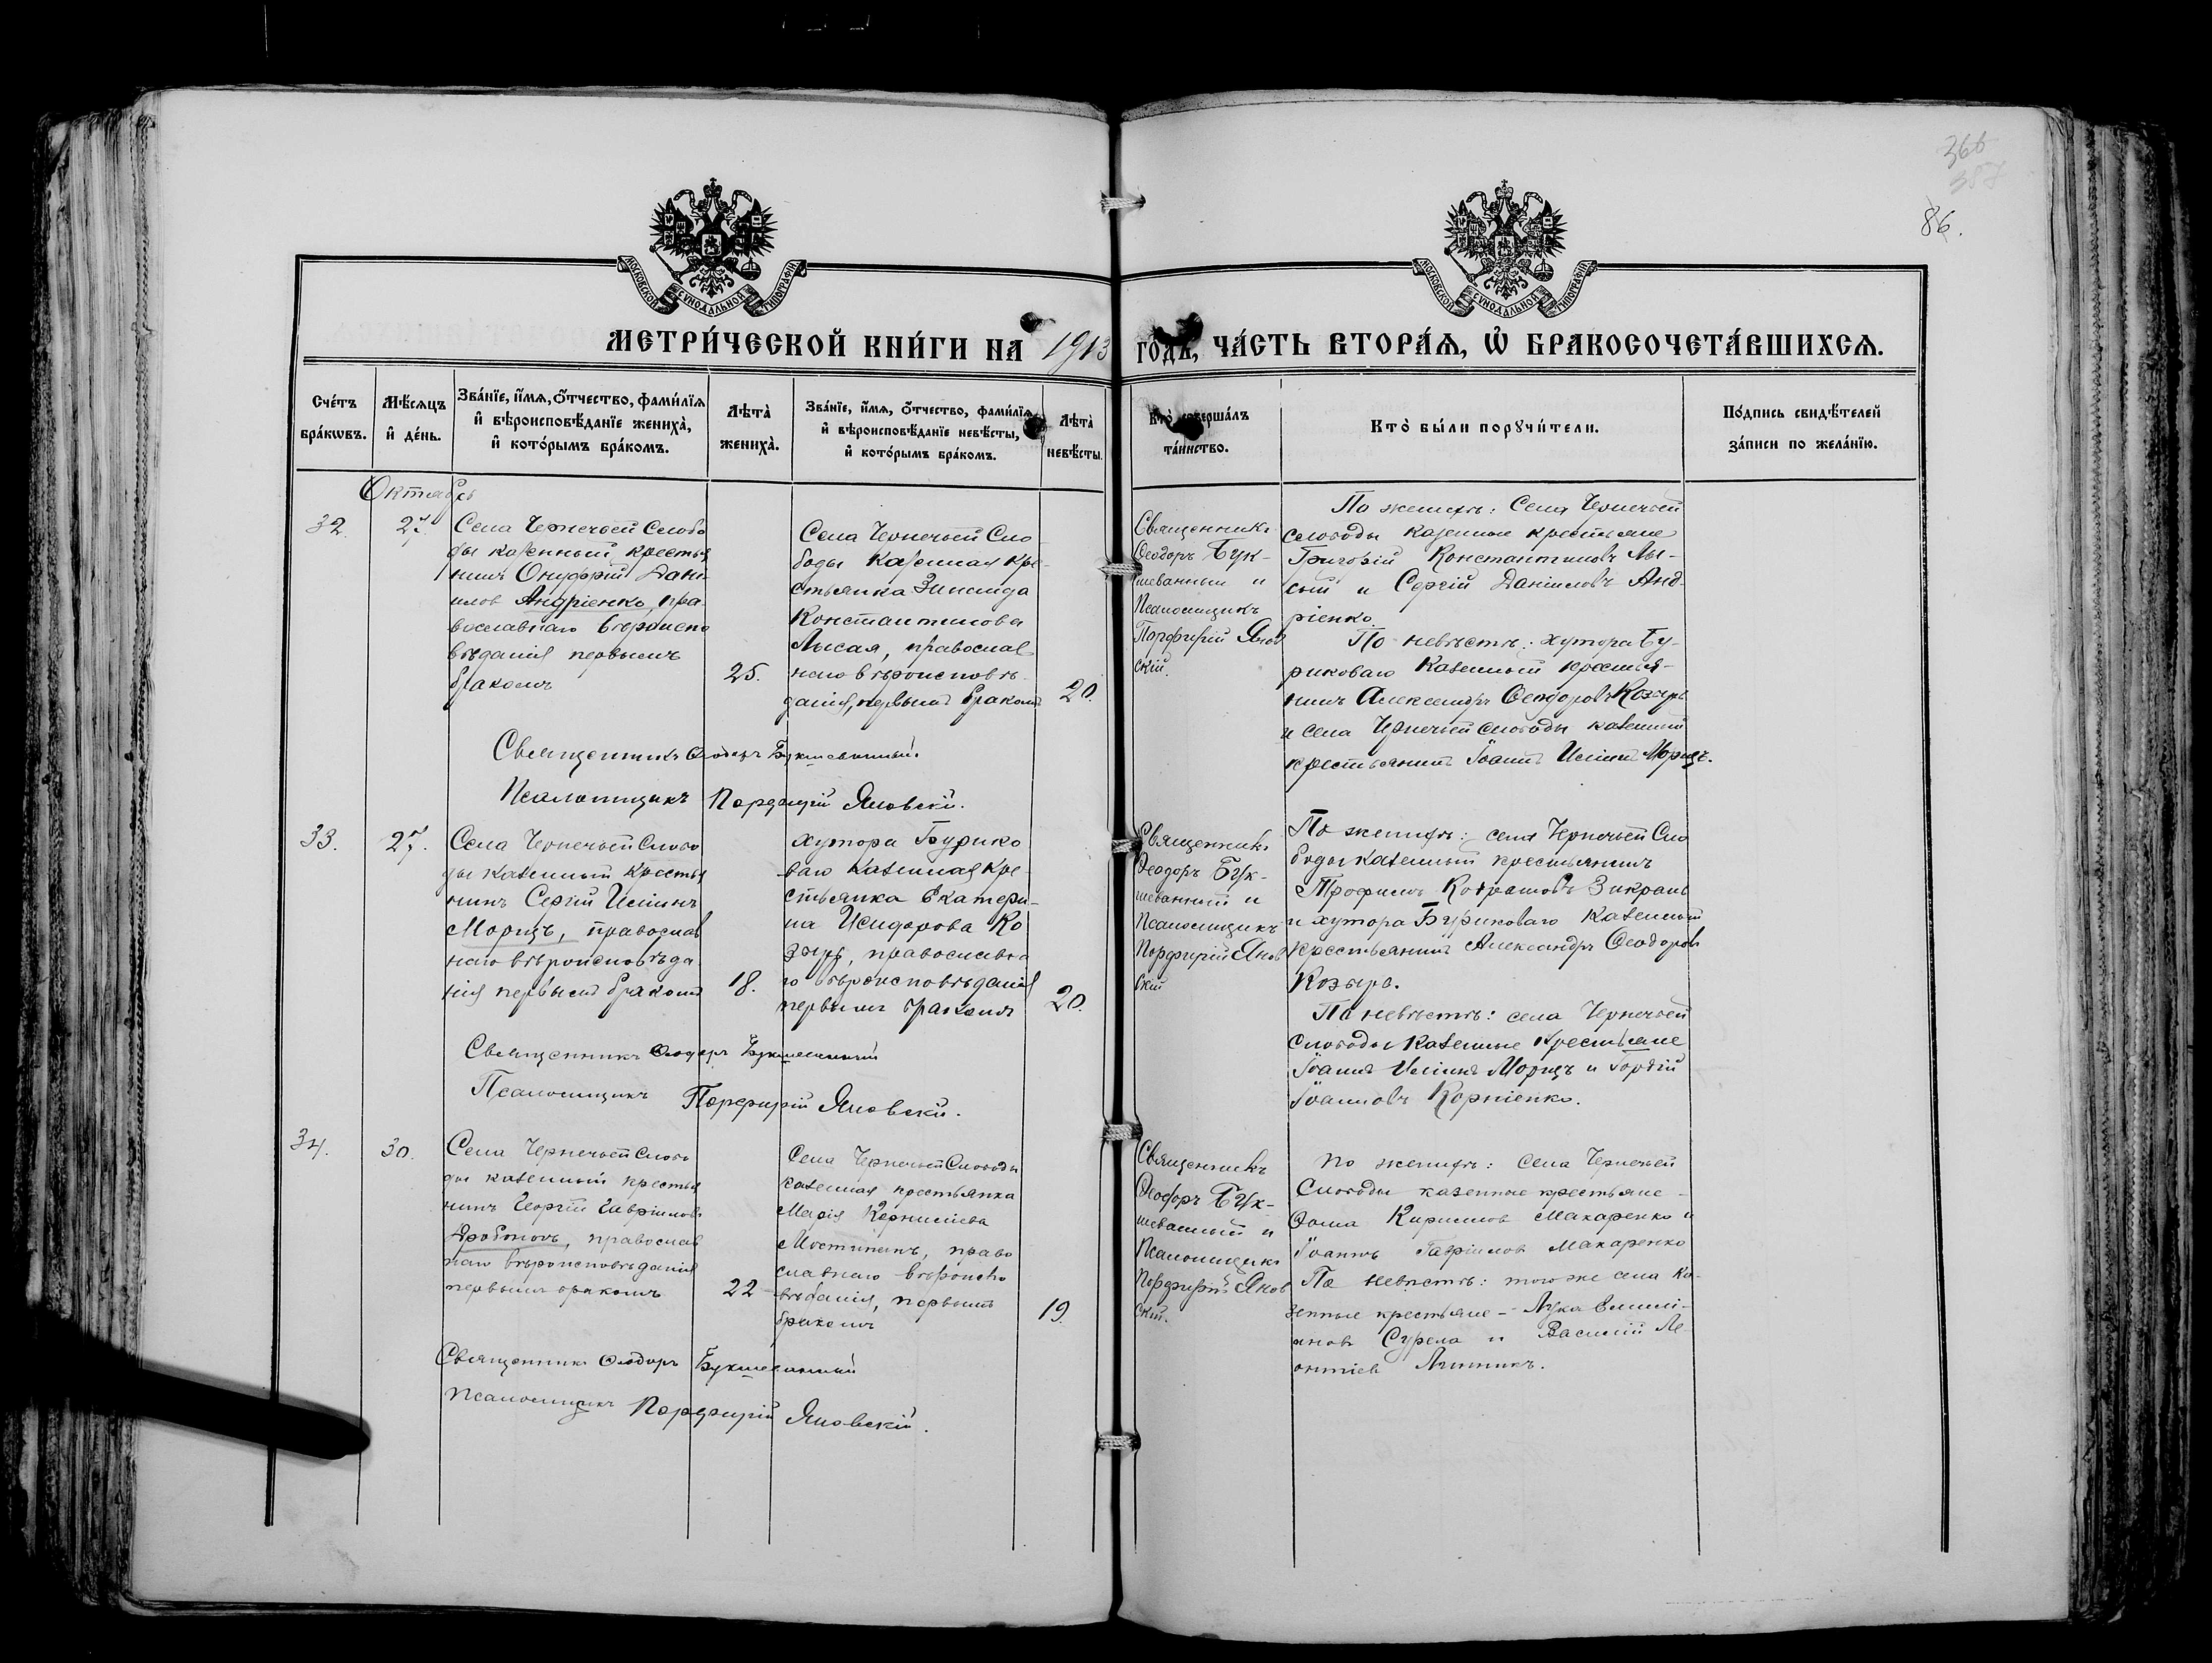 366
357
86.
МОСКОВСКОЙ СѴНОДАЛЬНОЙ ТИПОГРАФІИ
МОСКОВСКОЙ СѴНОДАЛЬНОЙ ТИПОГРАФІИ
МЕТРИ́ЧЕСКОЙ КНИ́ГИ НА 1913 ГОДЪ, ЧА́СТЬ ВТОРА́Ѧ, Ѡ҆ БРАКОСОЧЕТА́ВШИХСѦ.
Сче́тъ
бра́кѡвъ.
Мѣ́сѧцъ
и҆ де́нь.
Зва́нїе, и҆́мѧ, ѻ҆́тчество, фами́лїѧ
и҆ вѣроисповѣ́данїе жениха̀,
и҆ кото́рымъ бра́комъ.
Лѣта̀
жениха̀.
Зва́нїе, и҆́мѧ, ѻ҆́тчество, фами́лїѧ
и҆ вѣроисповѣ́данїе невѣ́сты,
и҆ кото́рымъ бра́комъ.
Лѣта̀
невѣ́сты.
Кто̀ соверша́лъ
та́инство.
Кто̀ бы́ли порꙋчи́тели.
По́дпись свидѣ́телей
за́писи по жела́нїю.
Октябрь
32.
27.
Села Чернечьей Слобо
ды казенный крестья
нинъ Онуфрій Дані
иловъ Андріенко, пра
вославнаго вѣроиспо
вѣданія первымъ
бракомъ
25.
Села Чернечьей Сло
боды казенная кре-
стьянка Зинаида
Константинова
Лысая, православ
наго вѣроисповѣ-
данія, первымъ бракомъ
20.
Священникъ
Ѳеодоръ Бук-
шеванный и
Псаломщикъ
Порфирій Янов
скій.
По женихѣ: Села Чернечьей
слободы казенные крестьяне
Григорій Константиновъ Лы-
сый и Сергій Даніиловъ Анд-
ріенко.
По невѣстѣ: хутора Бу-
риковаго казенный крестья-
нинъ Александръ Ѳеодоровъ Козырь
и села Чернечьей слободы казенный
крестьянинъ Іоаннъ Иліинъ Морозъ.
Священникъ Ѳеодоръ Букшеванный.
Псаломщикъ Порфирій Яновскій.
33.
27.
Села Чернечьей Слобо
ды казенный крестья
нинъ Сергій Иліинъ
Морозъ, православ
наго вѣроисповѣда
нія первымъ бракомъ
18.
хутора Бурико
ваго казенная кре-
стьянка Екатери-
на Исидорова Ко
зырь, православна
го вѣроисповѣданія
первымъ бракомъ
20.
Священникъ
Ѳеодоръ Бук-
шеванный и
Псаломщикъ
Порфирій Янов
скій
По женихѣ: села Чернечьей Сло
боды казенный крестьянинъ
Трофимъ
и хутора Буриковаго казенный
крестьянинъ Александръ Ѳеодоровъ
Козырь.
По невѣстѣ: села Чернечьей
слободы казенные крестьяне
Іоаннъ Иліинъ Морозъ и Гордій
Іоанновъ Корніенко.
Священникъ Ѳеодоръ Букшеванный
Псаломщикъ Порфирій Яновскій.
34.
30.
Села Чернечьей Слобо
ды казенный крестья
нинъ Георгій Гавріиловъ
Дроботъ, православ
наго вѣроисповѣданія
первымъ бракомъ
22
Села Чернечьей Слободы
казенная крестьянка
Марія Корниліева
право
славнаго вѣроиспо
вѣданія, первымъ
бракомъ
19.
Священникъ
Ѳеодоръ Бук-
шеванный и
Псаломщикъ
Порфирій Янов
скій.
По женихѣ: Села Чернечьей
Слободы казенные крестьяне -
Ѳома Кириловъ Макаренко и
Іоаннъ Гавріиловъ Макаренко
По невѣстѣ: того же села ка-
зенные крестьяне - Лука Емилі-
ановъ Сурела и Василій Ле-
онтіевъ
Священникъ Ѳеодоръ Букшеванный
Псаломщикъ Порфирій Яновскій.